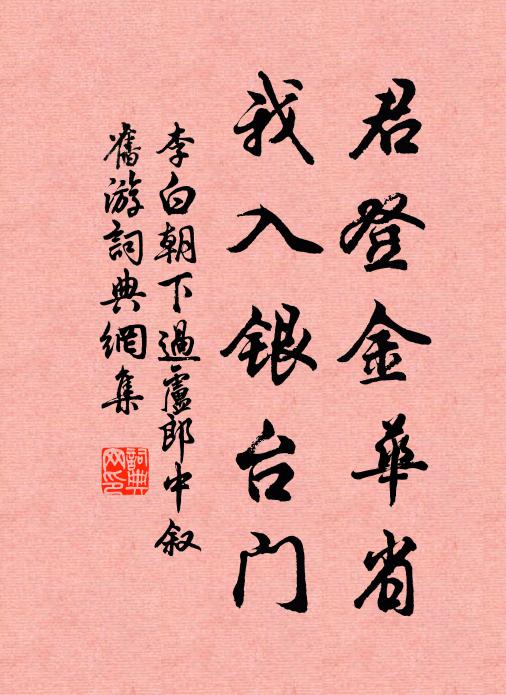 君登金華省
我入银台门
李白朝下過盧郎中叙
舊游詞典網集
詞典网印